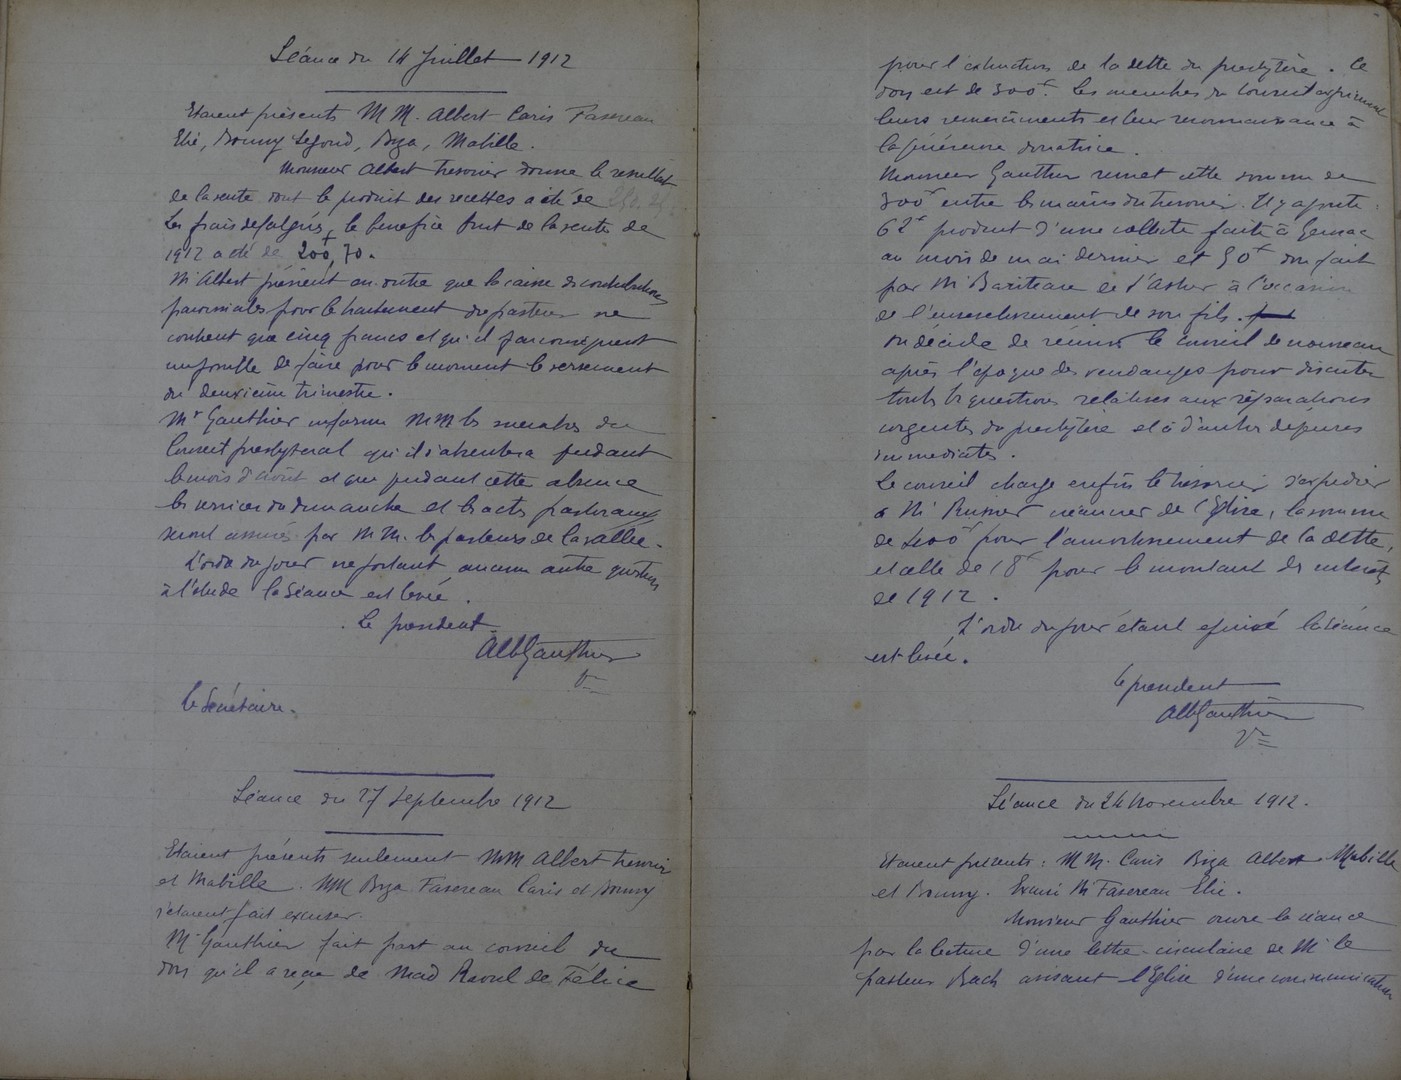 Séance du 14 Juillet 1912
Etaient présents MM. Albert Caris Fasereau
Elie, Bounny Legond, Biza, Mabille.
Monsieur Albert tresorier donne le resultat
de la vente dont le produit des recettes a été de
Les frais défalqués, le benefice brut de la vente de
1912 a été de 200f,70.
Mr Albert prévient en outre que la caisse des contributions
paroissiales pour le traitement du pasteur ne
contient que cinq francs et qu'il sera consequent
impossible de faire pour le moment le versement
du deuxième trimestre.
Mr Gauthier informe MM les membres du
Conseil presbyteral qu'il s'absentera pendant
le mois d'août et que pendant cette absence
les services du dimanche et les actes pastoraux
seront assurés par MM. les pasteurs de la vallée.
L'ordre du jour ne portant aucune autre question
à l'étude la séance est levée.
Le president
Alb Gauthier
Le Secrétaire.
Séance du 27 Septembre 1912
Etaient présents seulement MM Albert tresorier
et Mabille. MM Biza Fasereau Caris et Bounny
s'étaient fait excuser.
Mr Gauthier fait part au conseil du
don qu'il a reçu de Mad Raoul de Félice
pour l'extinction de la dette du presbytère. Ce
don est de 300f. Les membres du Conseil expriment
leurs remerciments et leur reconnaissance à
la généreuse donatrice.
Monsieur Gauthier remet cette somme de
300f entre les mains du tresorier. Il y ajoute:
62f produit d'une collecte faite à Gensac
au mois de mai dernier et 50f don fait
par Mr Bariteau de St Astier à l'occasion
de l'ensevelissement de son fils.
On décide de réunir le conseil de nouveau
après l'époque des vendanges pour discuter
toutes les questions relatives aux réparations
urgentes du presbytère et à d'autres dépenses
immediates.
Le conseil charge enfin le tresorier d'expedier
à Mr créancier de l'Eglise, la somme
de 400f pour l'amortissement de la dette,
et celle de 18f pour le montant des intérêts
de 1912.
L'ordre du jour étant épuisé la séance
est levée.
Le president
Alb Gauthier
Séance du 24 Novembre 1912.
Etaient présents: MM. Caris Biza Albert Mabille
et Bounny. Excusé Mr Fasereau Elie.
Monsieur Gauthier ouvre la séance
par la lecture d'une lettre-circulaire de Mr le
pasteur Bach avisant l'Eglise d'une communication